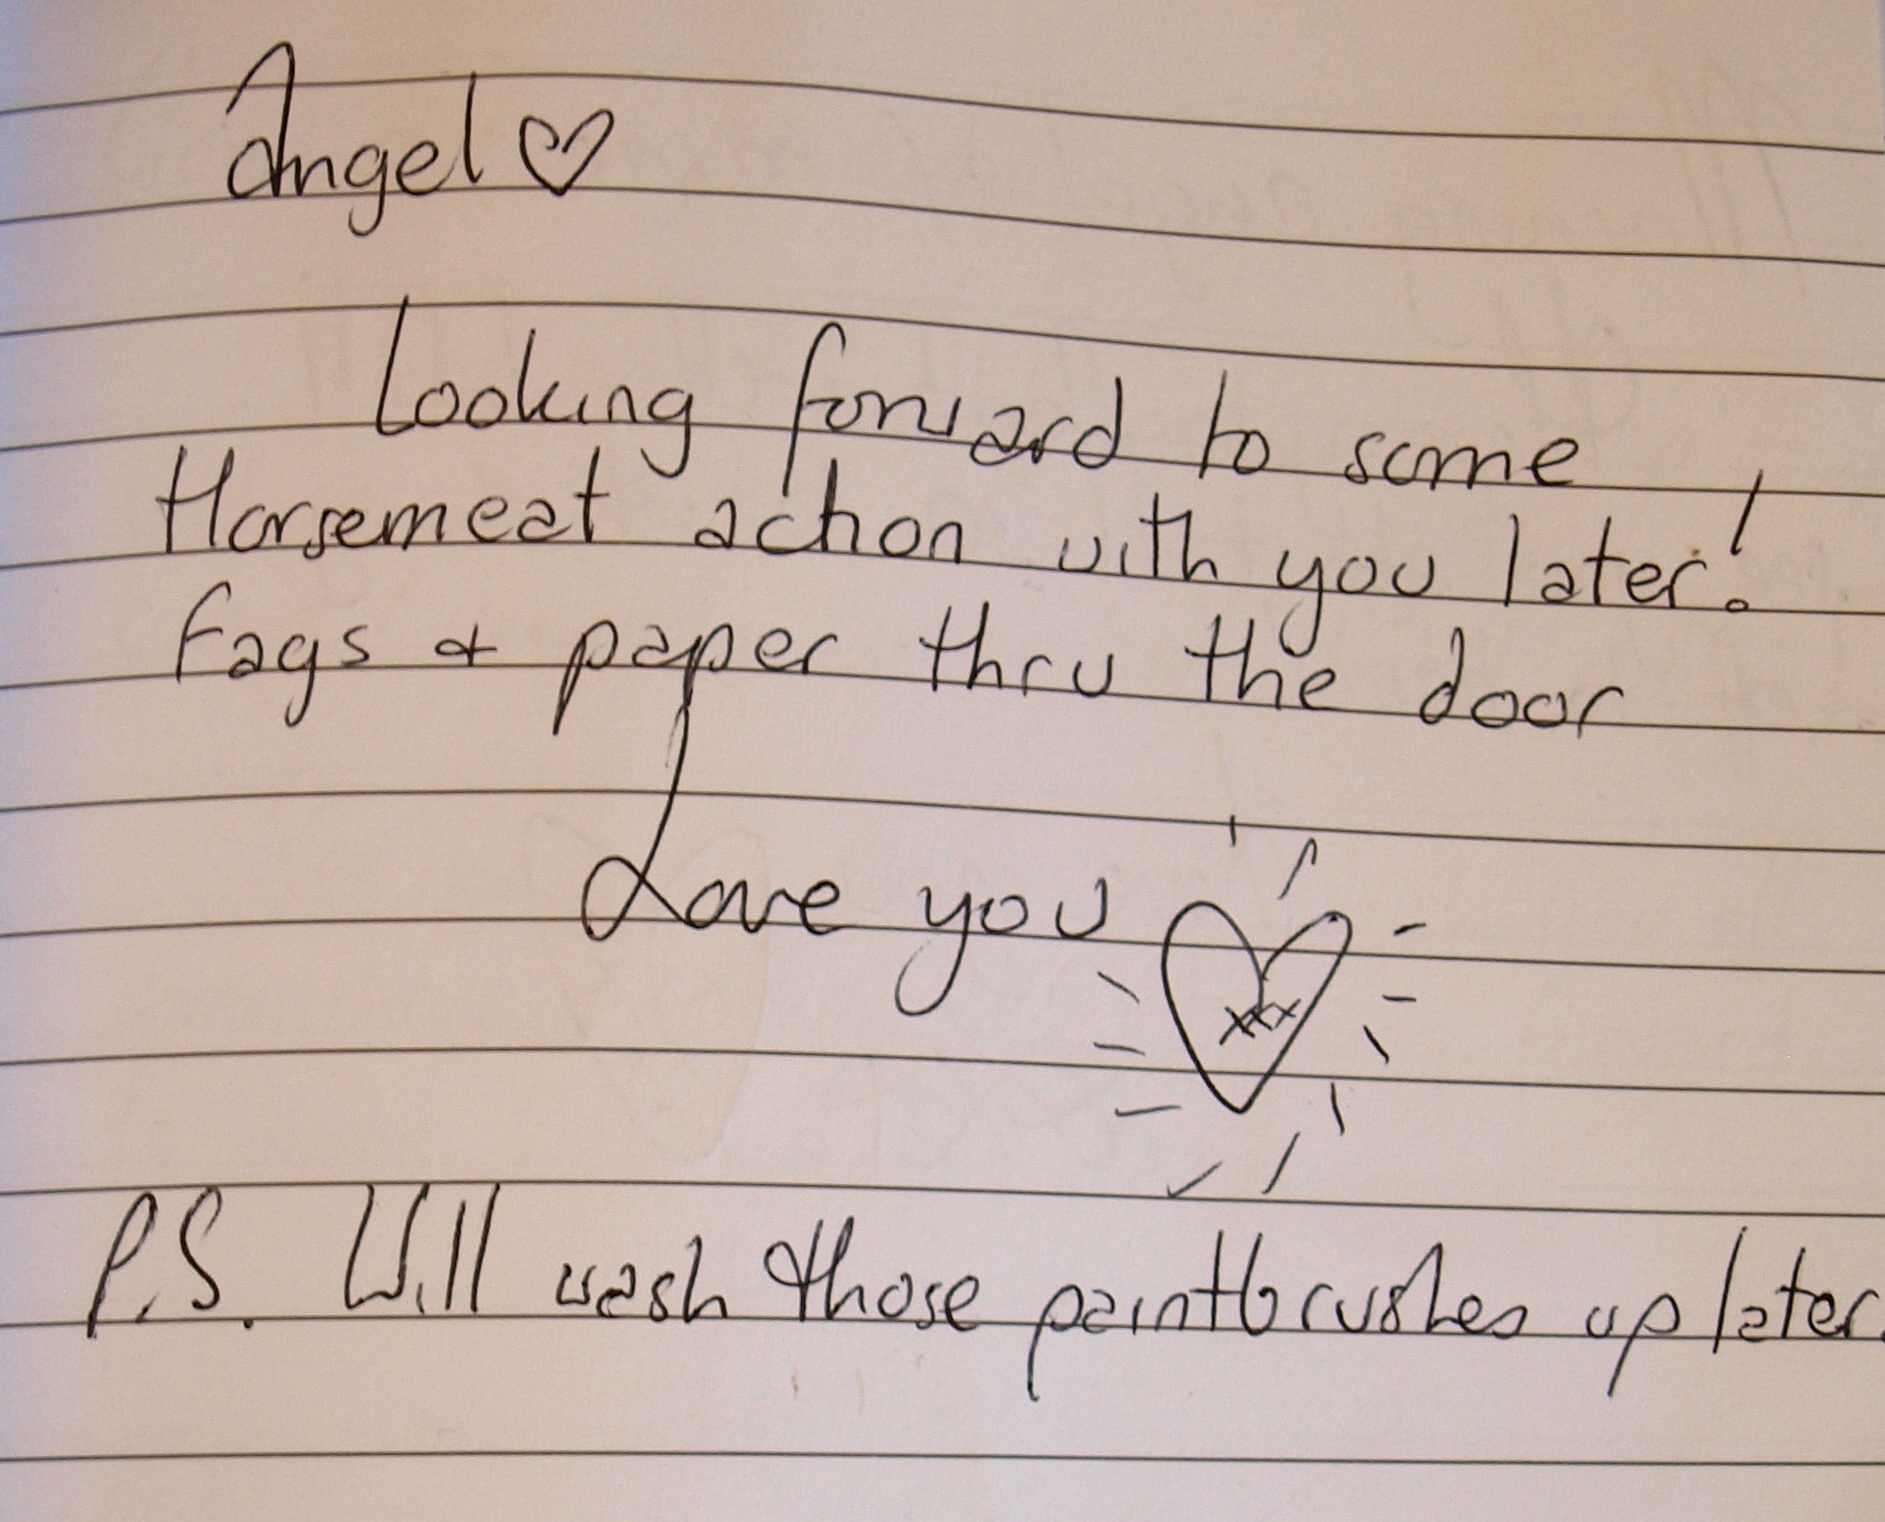 Angel ♡
Looking forward to some
Horsemeat action with you later!
Fags + paper thru the door
Love you
xxx
P.S. Will wash those paintbrushes up later.